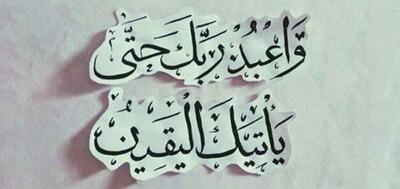 وَاعْبُدْ رَبَّكَ حَتَّى
يَأْتِيَكَ الْيَقِينُ